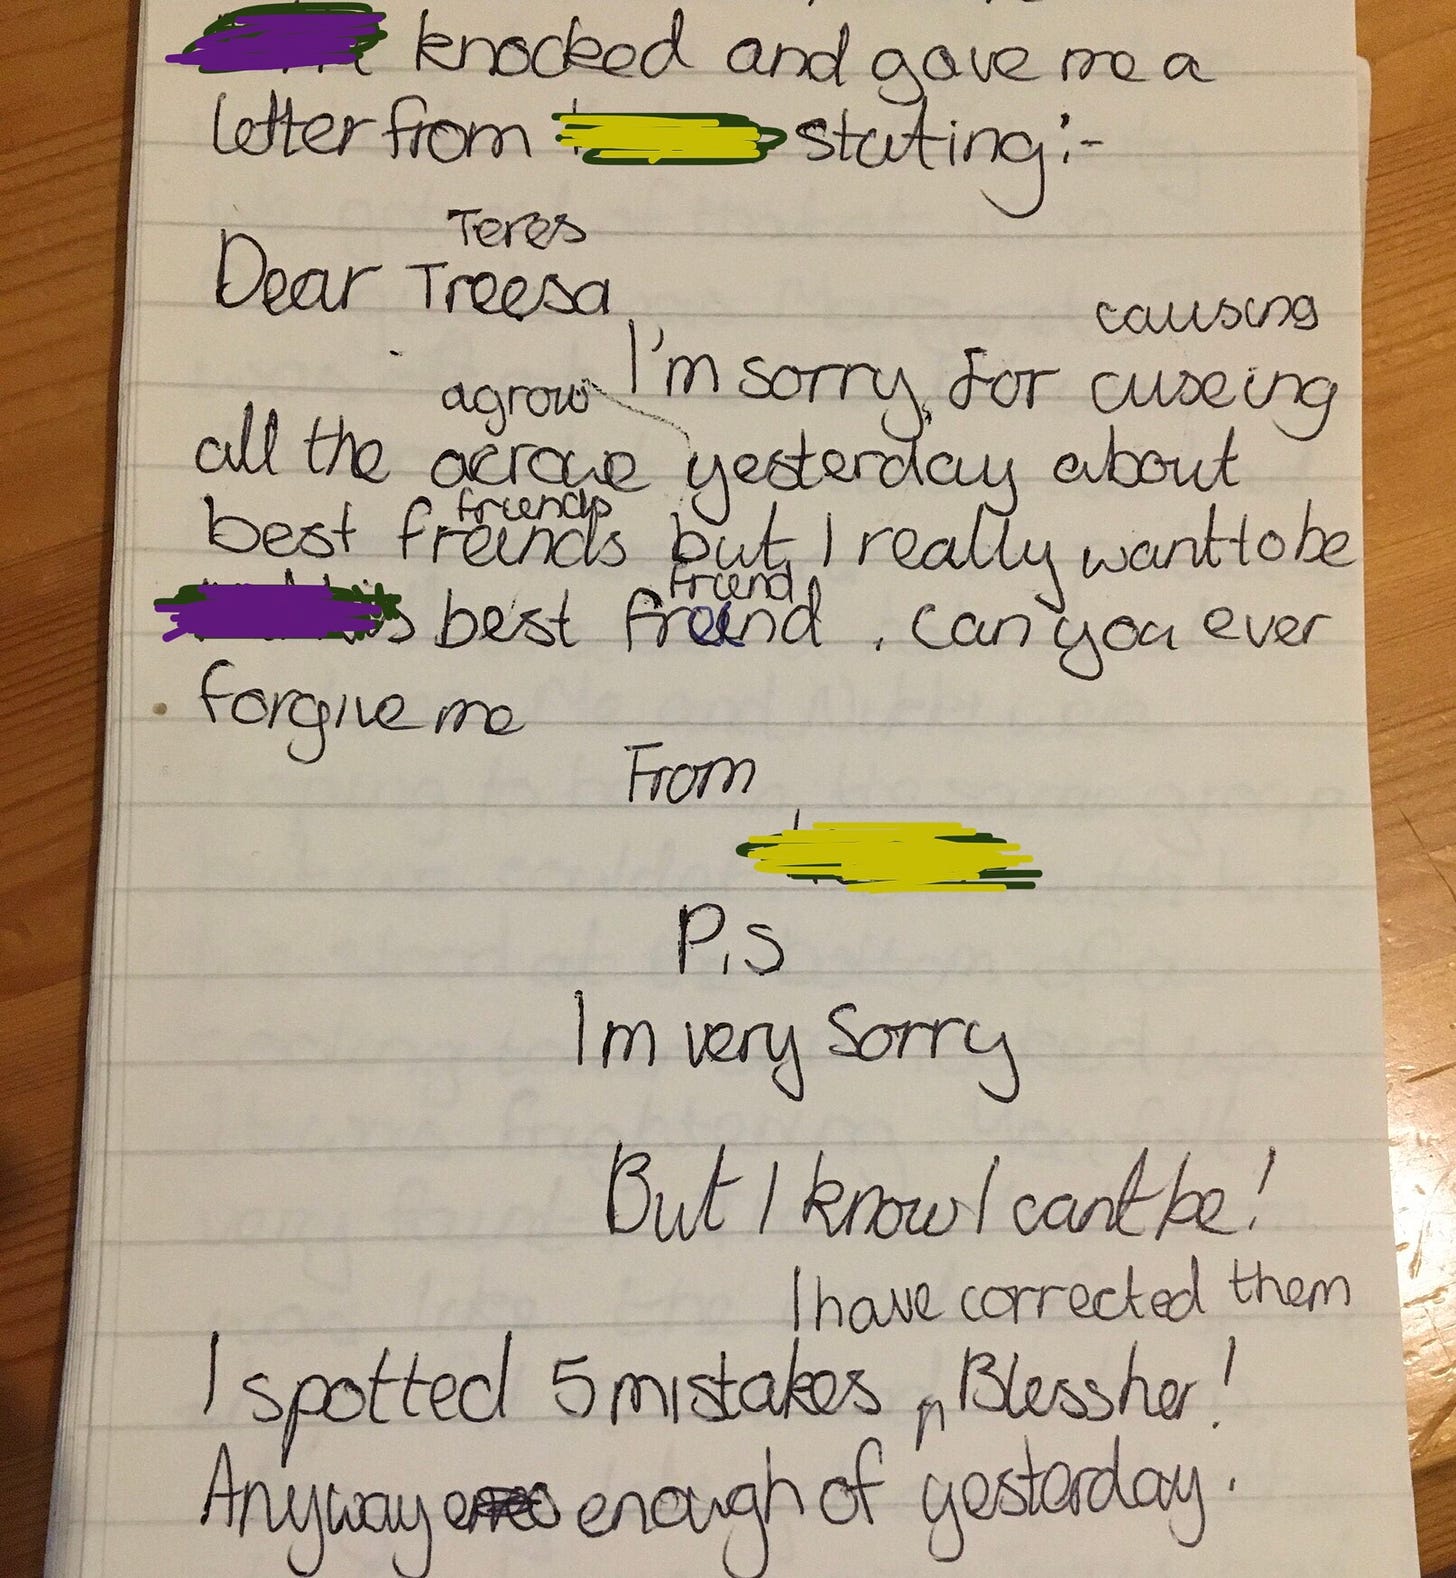 knocked and gave me a
letter from stating:-
Teres
Dear Treesa
causing
I'm sorry, for cuseing
agrow
all the acrowe yesterday about
friends
best freinds but I really want to be
friend
best freind. Can you ever
forgive me
From
P.s
Im very Sorry
But I know I cant be!
I have corrected them
I spotted 5 mistakes, Bless her!
Anyway enough of yesterday.